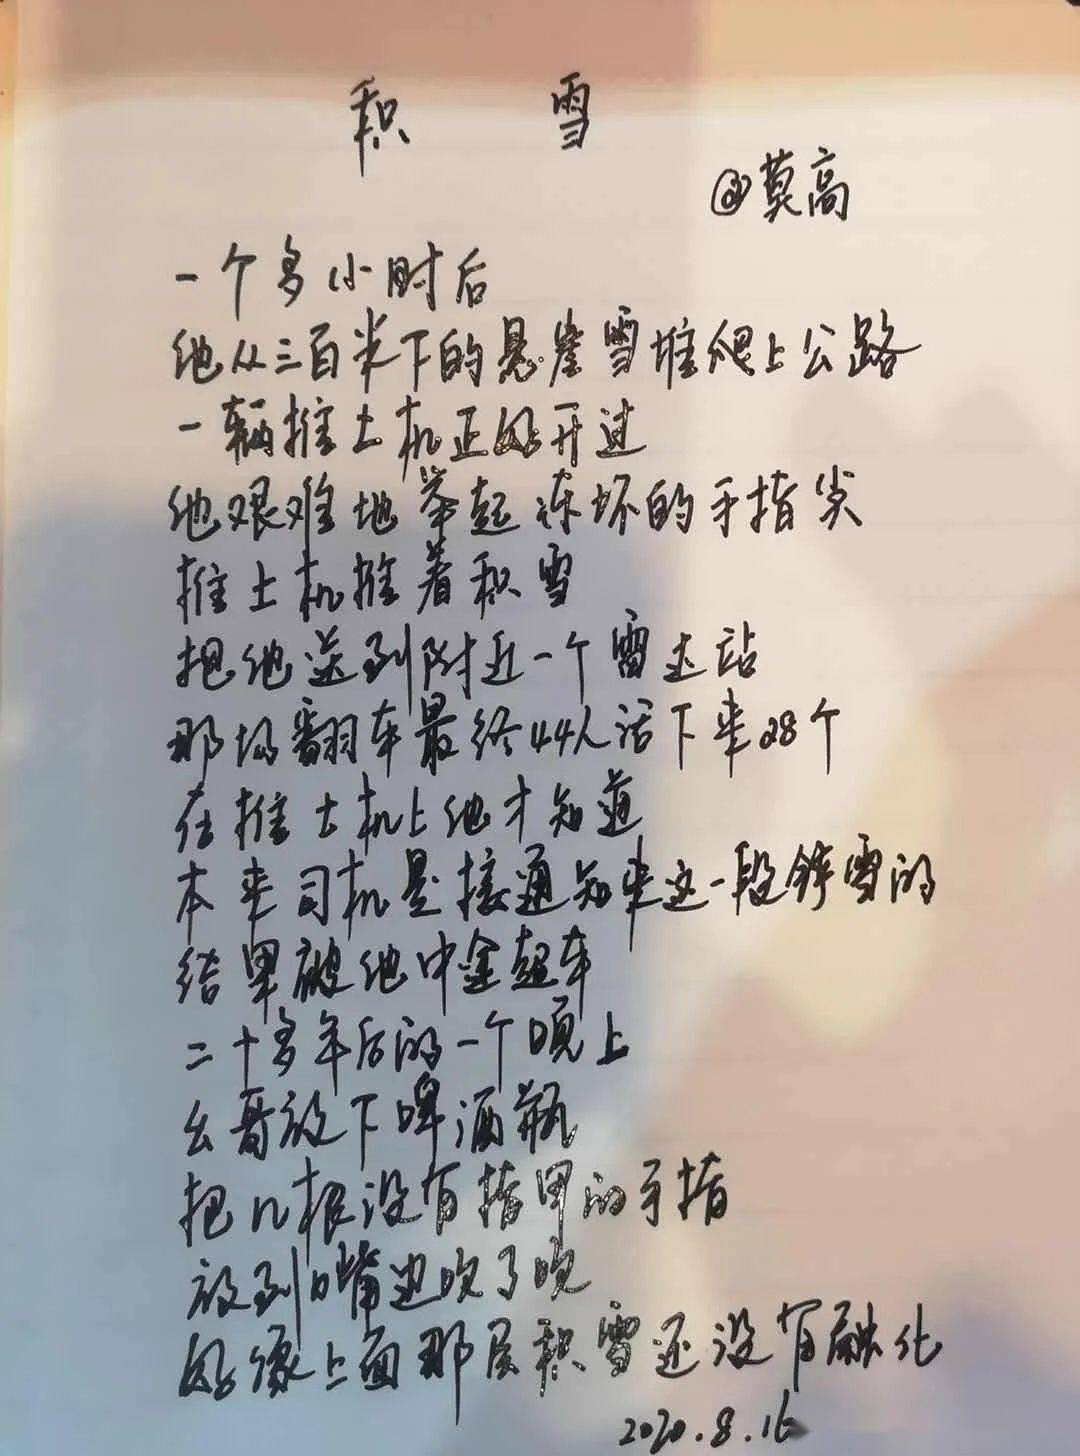 积 雪
@莫高
一个多小时后
他从三百米下的悬崖雪堆爬上公路
一辆推土机正好开过
他艰难地举起冻坏的手指尖
推土机推着积雪
把他送到附近一个雷达站
那场翻车最终44人活下来28个
在推土机上他才知道
本来司机是接通知来这一段铲雪的
结果被他中途超车
二十多年后的一个晚上
幺哥放下啤酒瓶
把几根没有指甲的手指
放到嘴边吹了吹
好像上面那层积雪还没有融化
2020.8.16